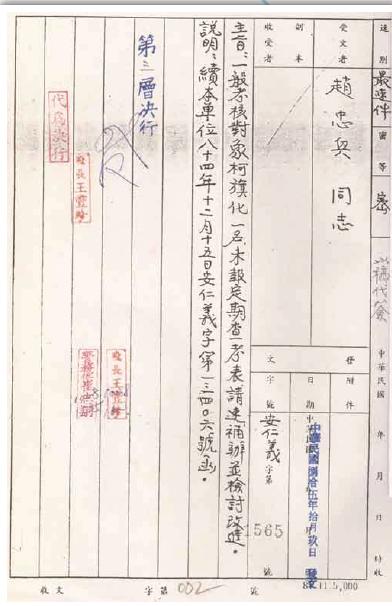 速別
最速件
密等
密
以稿代簽
中華民國 年 月 日 時收
受文者
趙忠與同志
副本
收受者
發文
附件
日期
中華民國捌拾五年拾月玖日
發文
字號
安仁義字第
1565
號
主旨：一般考核對象柯旗化一名未報定期查考表請速補辦並檢討改進。
說明：續本單位八十四年十二月十五日安仁義字第一三四〇六號函。
第三層決行
代為決行
收文
字第
002
號